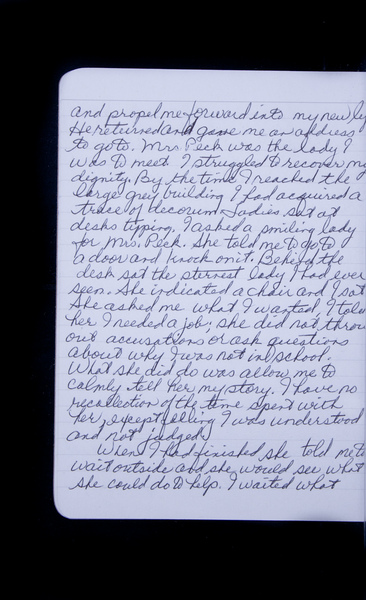 and propel me forward into my new ly
He returned and gave me an address
to go to. Mrs. Peck was the lady I
was to meet. I struggled to recover my
dignity. By the time I reached the
large grey building I had acquired a
trace of decorum. Ladies sat at
desks typing. I asked a smiling lady
for Mrs. Peck. She told me to go to
a door and knock on it. Behind the
desk sat the sternest lady I had ever
seen. She indicated a chair and I sat
She asked me what I wanted, I told
her I needed a job, she did not throw
out accusations or ask questions
about why I was not in school.
What she did do was allow me to
calmly tell her my story. I have no
recollection of the time spent with
her, except feeling I was understood
and not judged.
When I had finished she told me to
wait outside and she would see what
she could do to help. I waited what